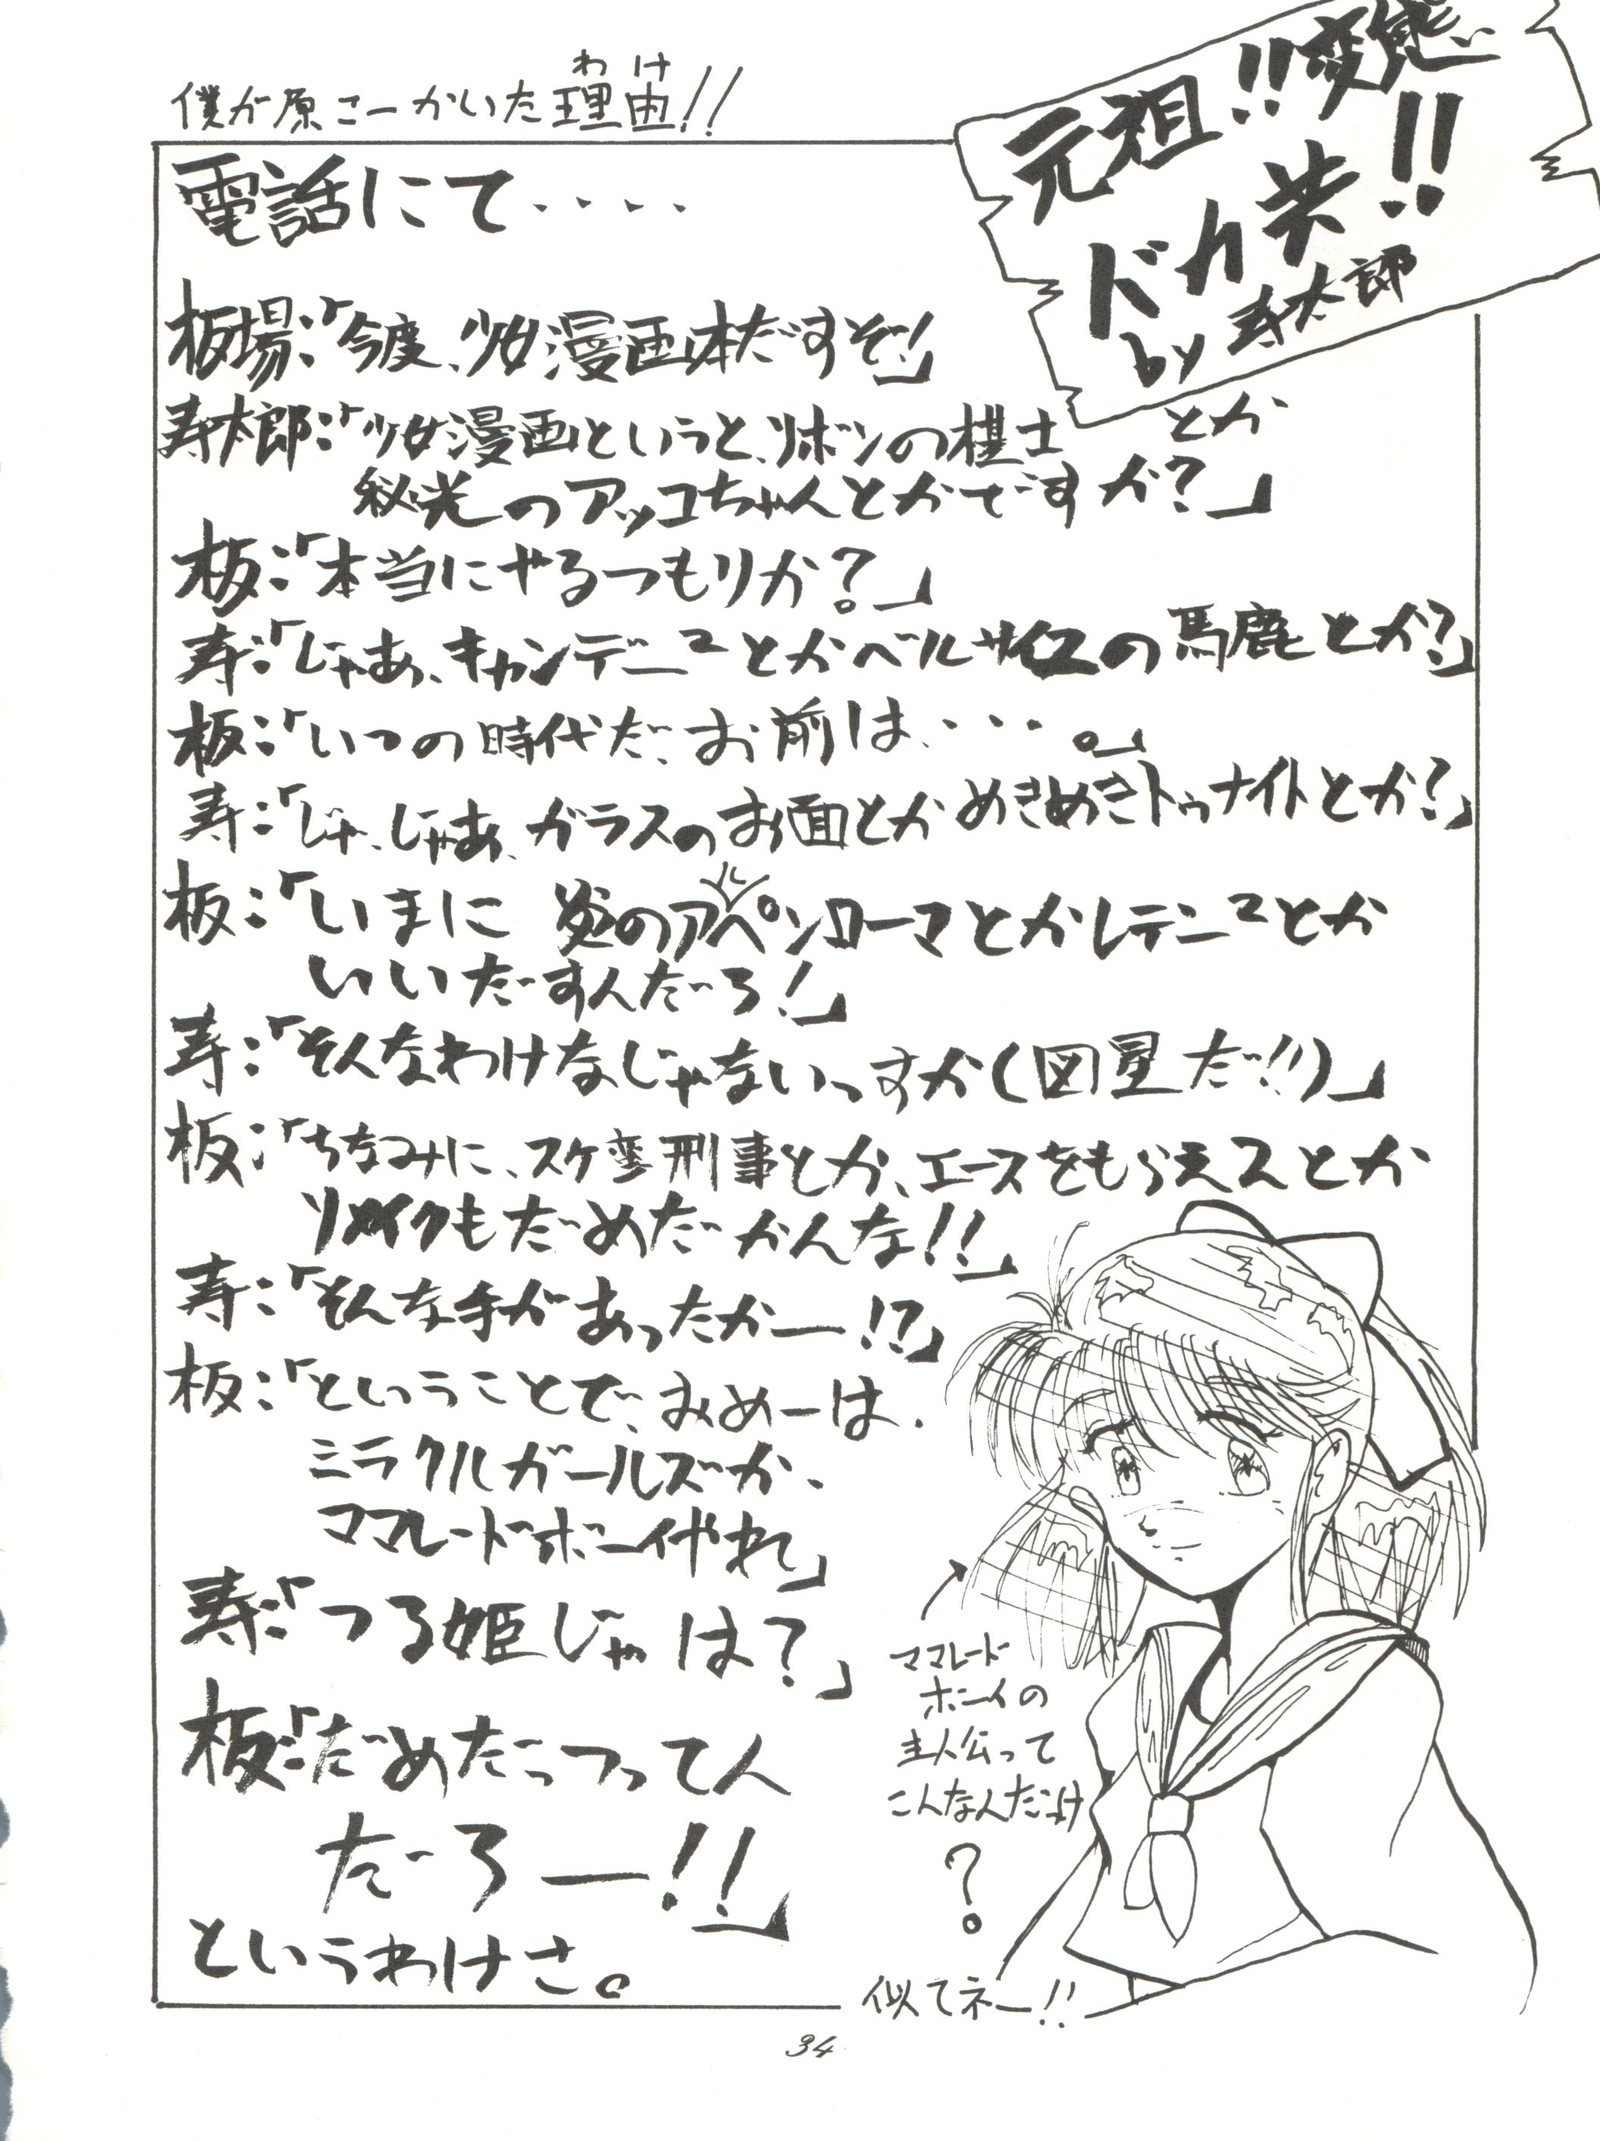 僕が原こーかいた理由!!
わけ
元祖!!変態
ドカ柴!!
by 寿太郎
電話にて‥‥
板場:「今度、少女漫画本だすぞ!」
寿太郎:「少女漫画というと、リボンの棋士とか
秘光のアッコちゃんとかですか?」
板:「本当にやるつもりか?。」
寿:「じゃあ、キャンデニ2とかベルサイユの馬鹿とか?」
板:「いつの時代だ、お前は、・・・。」
寿:「じゃ、じゃあ、ガラスのお面とかめきめきトゥナイトとか?」
板:「いまに 炎のアルペンローマとかレテニ2とか
いいだすんだろ!」
寿:「そんなわけなじゃないっすか(図星だ!!)」
板:「ちなみに、スケ蛮刑事とか、エースをもらえ2とか
リメイクもだめだかんな!!」
寿:「そんな手があったかー!?」
板:「ということで、おめーは、
ミラクルガールズか、
ママレードボーイやれ」
寿:「つる姫じゃは?」
板:「だめだっつってん
だろー!!」
というわけさ。
ママレード
ボーイの
主人公って
こんなんだっけ
?
似てネー!!
34